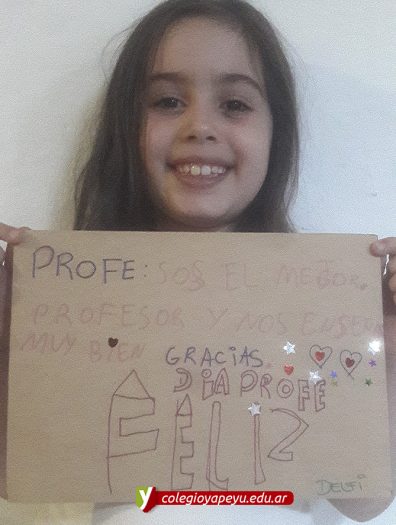 PROFE: SOS EL MEJOR
PROFESOR Y NOS ENSEÑA
MUY BIEN
GRACIAS
DIA PROFE
FELIZ
DELFI
colegioyapeyu.edu.ar